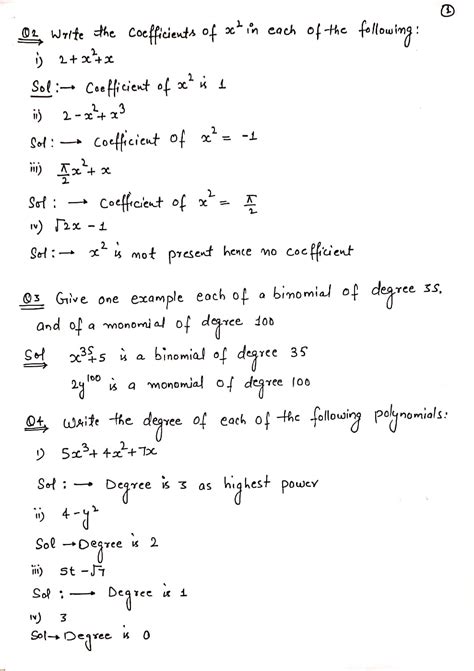 ①
Q2 Write the coefficients of x² in each of the following:
i) 2+x²+x
Sol :→ Coefficient of x² is 1
ii) 2-x²+x³
Sol : → Coefficient of x² = -1
iii) π/2 x²+x
Sol : → Coefficient of x² = π/2
iv) √2x - 1
Sol :→ x² is not present hence no coefficient
Q3 Give one example each of a binomial of degree 35,
and of a monomial of degree 100
Sol x³⁵+5 is a binomial of degree 35
2y¹⁰⁰ is a monomial of degree 100
Q4, Write the degree of each of the following polynomials:
i) 5x³+4x²+7x
Sol : → Degree is 3 as highest power
ii) 4-y²
Sol →Degree is 2
iii) 5t-√7
Sol : → Degree is 1
iv) 3
Sol→ Degree is 0